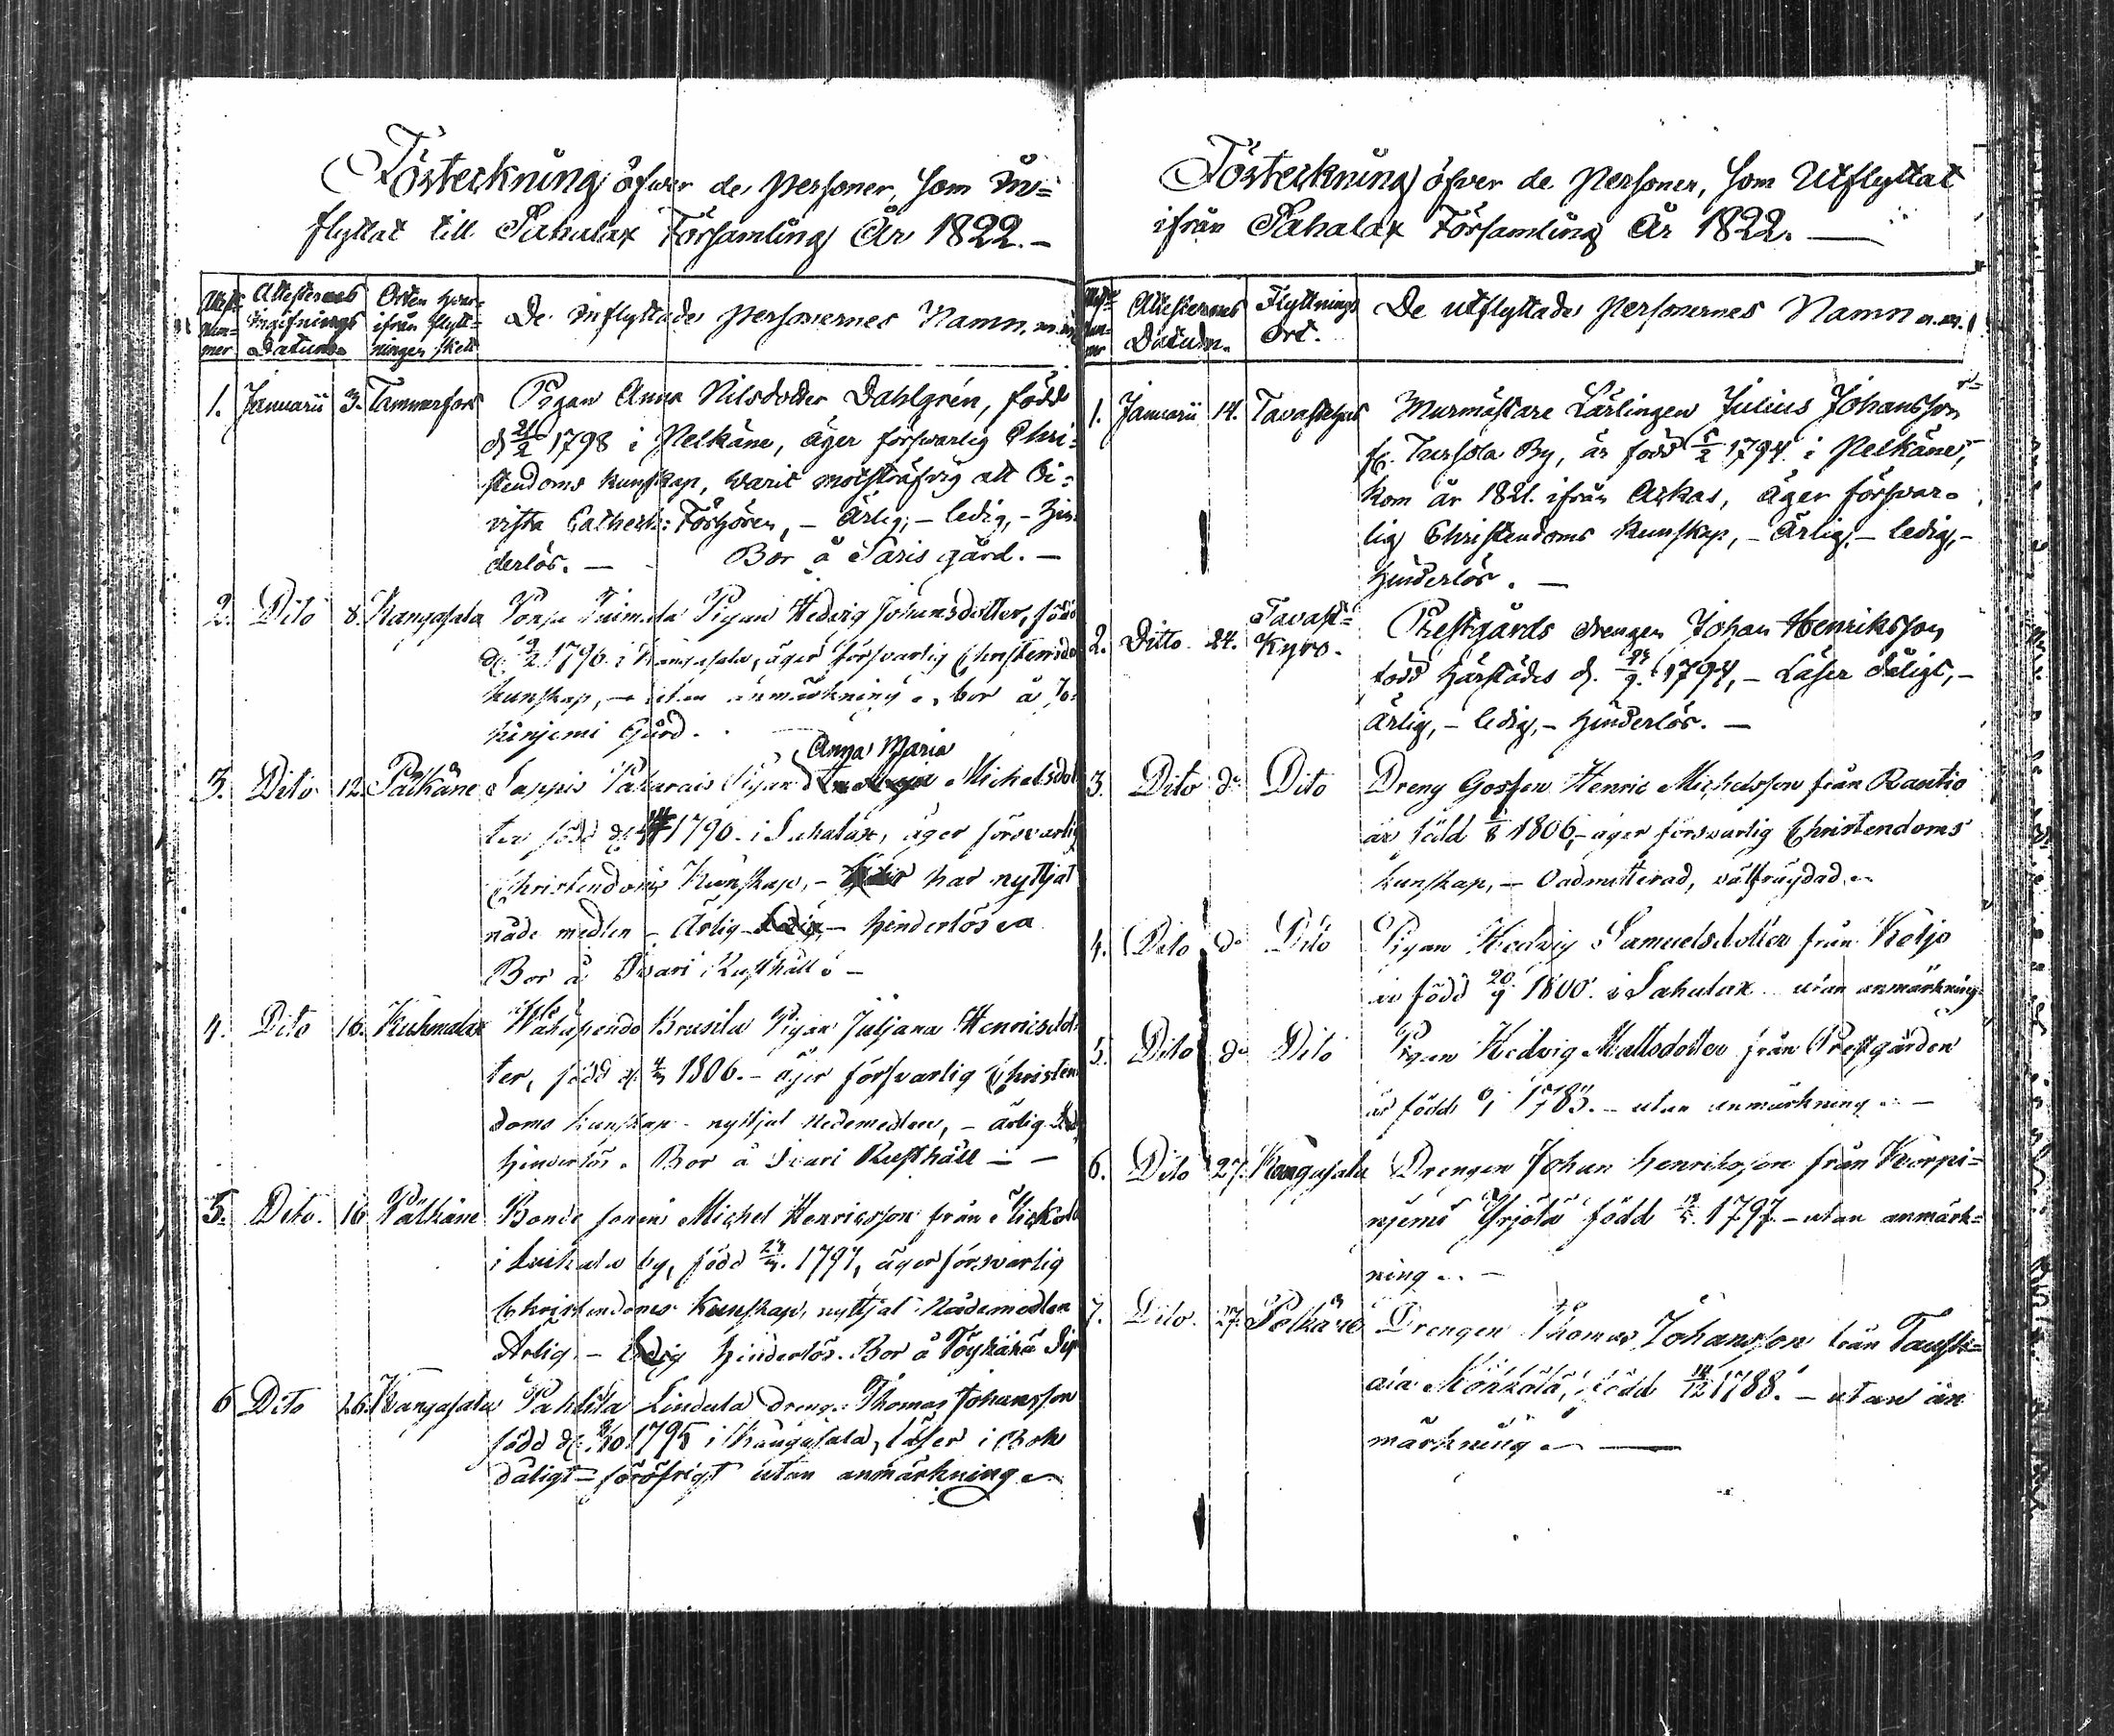 Förteckning öfver de personer, som In-
flyttat till Sahalax Församling År 1822. -
Attest- Num- mer
Attesternes Ingifnings Datum.
Orten hvar- ifrån flytt- ningen skett
De inflyttade personernes Namn. m.m.
1. Januarii 3. Tammerfors Pigan Anna Nilsdotter Dahlgrén, född
d. 21/2 1798 i Pelkäne, äger försvarlig Chri-
stendoms kunskap, warit motsträfvig att bi-
vista Cathech: Förhören, - Ärlig, - ledig, - Hin-
derlös. - Bor å Saris gård. -
2. Dito 8. Kangasala Pigan Hedvig Johansdotter, född
1796 i Kangasala, äger försvarlig Christendo
kunskap, - utan anmärkning, bor å
Gård.
Anna Maria
3. Dito 12. Pälkäne Pigan Michelsdot
ter född d. 1790. i Sahalax, äger försvarlig
Christendoms Kunskap, - har nyttjat
nåde medlen - Ärlig - Ledig, - hinderlös
Bor å Isvari Rusthåll -
4. Dito 16. Kuhmalax Pigan Juljana Henricsdot
ter, född d. 1806. - äger försvarlig Christen
doms kunskap - nyttjat nådemedlen, - ärlig
hinderlös. Bor å Isvari Rusthåll -
5. Dito. 16 Pälkäne Bonde sonen Michel Henricsson från
i by, född 1797, äger försvarlig
Christendoms Kunskap, nyttjat Nådemedlen
Ärlig - Ledig Hinderlös. Bor å
6 Dito 26. Kangasala Lindula dreng. Thomas Johansson
född d. 1795 i Kangasala, läser i Bok
dåligt - föröfrigt utan anmärkning
Förteckning öfver de personer, som Utflyttat
ifrån Sahalax Församling År 1822.
Attesternes Datum.
Flyttnings Ort.
De utflyttade personernes Namn m.m.
1. Januarii 14. Tavastehus Murmästare Lärlingen Julius Johansson
By, är född 5/2 1794 i Pelkäne,
kom år 1821. ifrån Askas, äger försvar-
lig Christendoms kunskap, - Ärlig, - ledig, -
hinderlös. -
2. Ditto 24. Tavast-
Kyro. Prestgårds drengen Johan Henriksson
född härstädes d. 1794, - Läser dåligt, -
ärlig, - ledig, - hinderlös. -
3. Dito do Dito Dreng Gossen Henric Michelsson från Rautio
är född 1806, äger försvarlig Christendoms
kunskap, - Oadmitterad, välfrägdad
4. Dito do Dito Pigan Hedvig Samuelsdotter från Ketjo
är född 20/9 1800. i Sahalax utan anmärkning
5. Dito do Dito Pigan Hedvig Mattsdotter från Prestgården
är född 1783. - utan anmärkning -
6. Dito 27. Kangasala Drengen Johan Henriksson från Korpi-
njemi Yrjölä född 1797 - utan anmärk-
ning -
7. Dito. 27. Pelkäne Drengen Thomas Johansson från
född 1788. - utan an
märkning